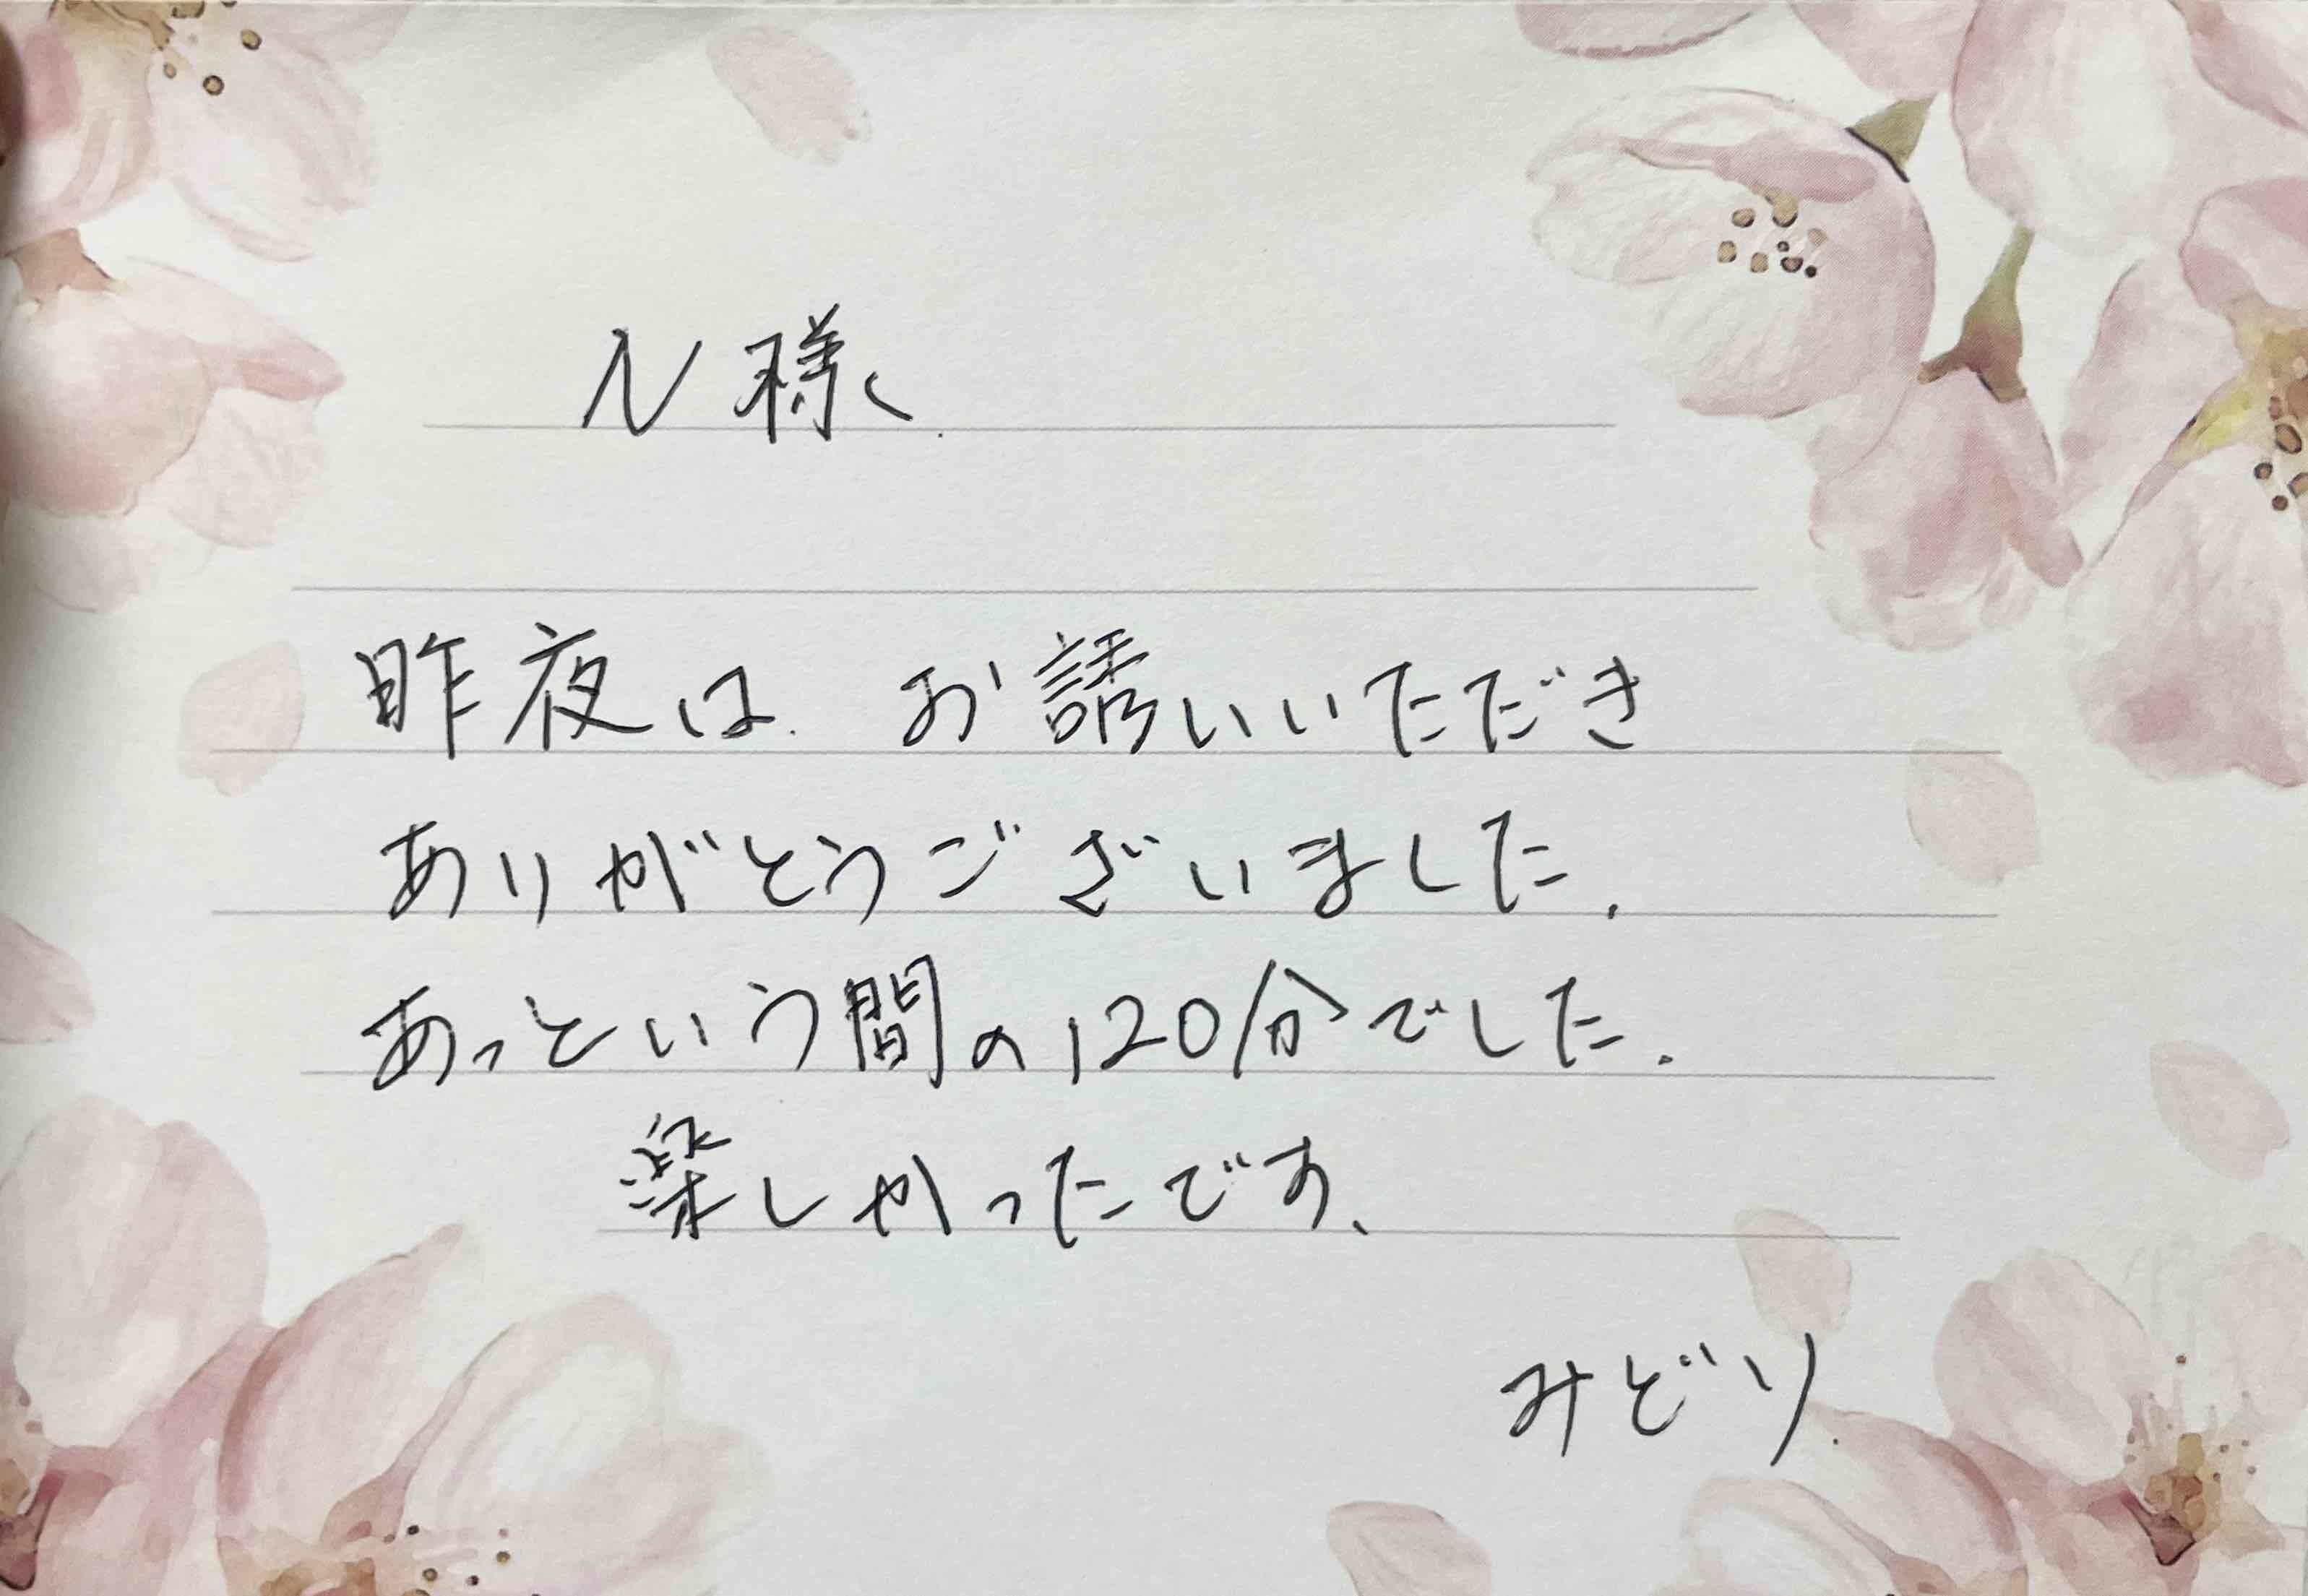 N様、
昨夜は お誘いいただき
ありがとうございました.
あっという間の120分でした.
楽しかったです、
みどり.